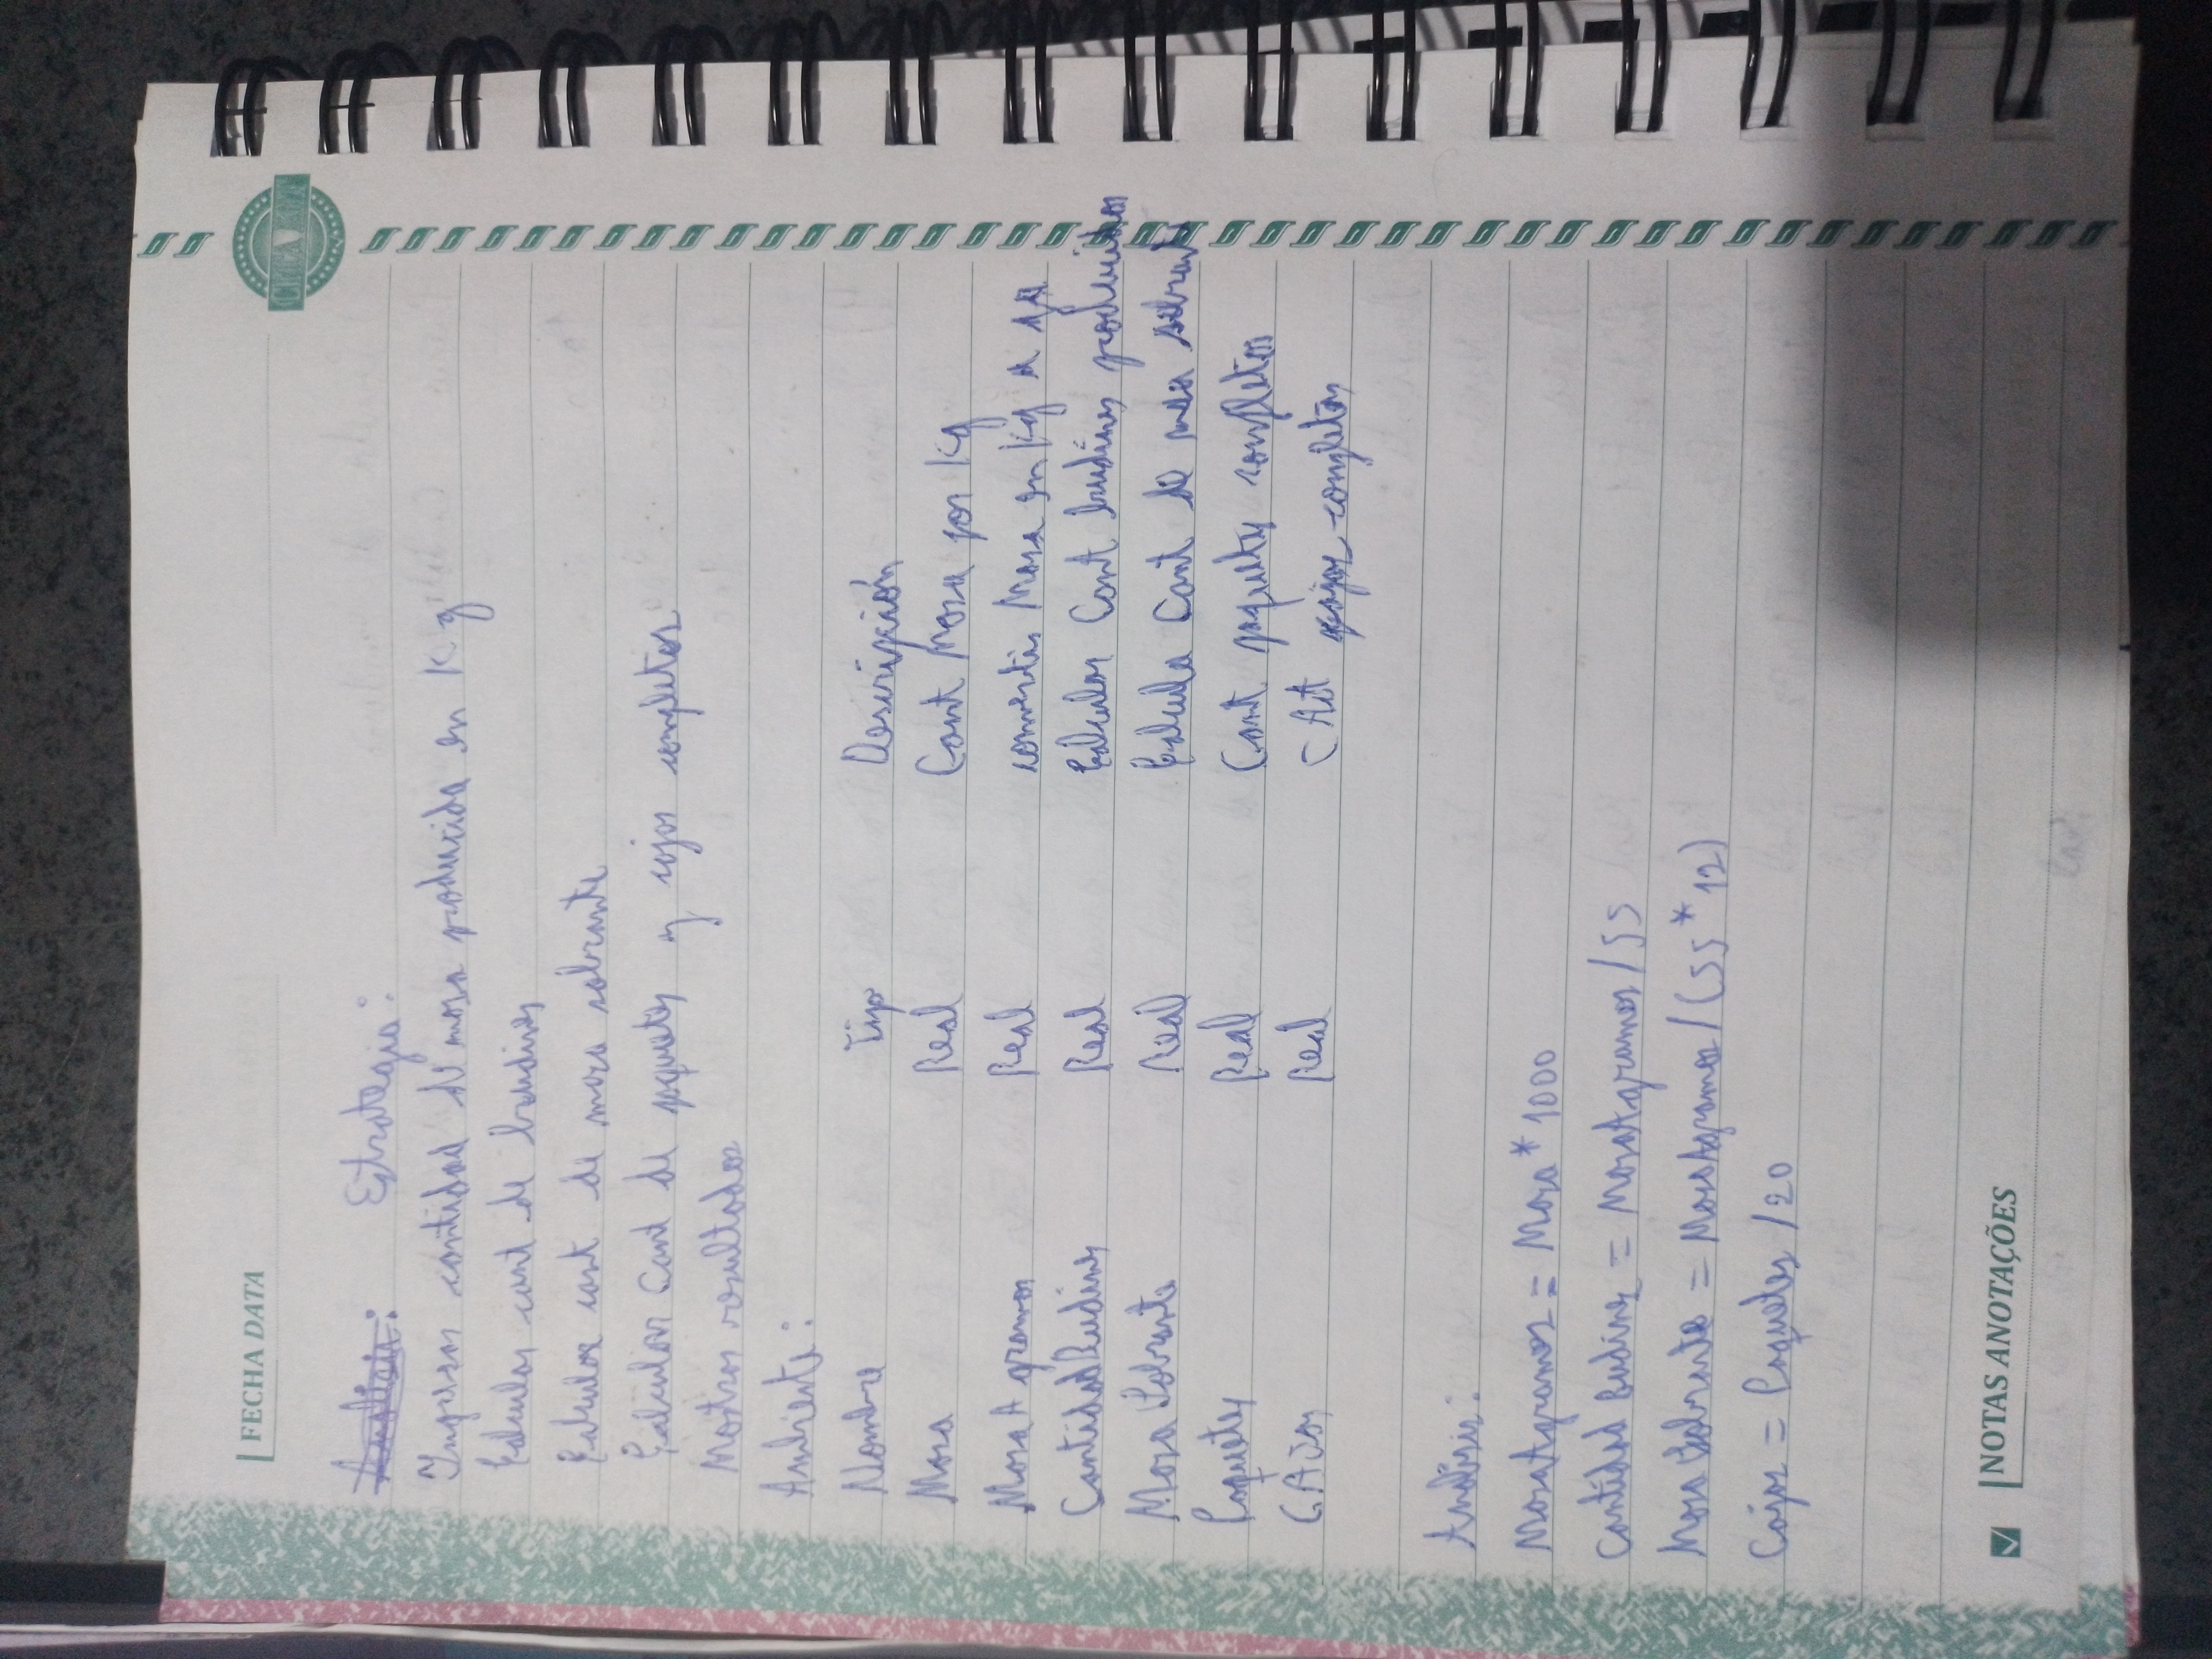 FECHA DATA
CHICA ART
Analisis: Estrategia:
Ingresar cantidad de masa producida en Kg
Calcular cant de budines
Calcular cant de masa sobrante
Calcular Cant de pquetes y cajas completas
Mostrar resultados
Ambiente:
Nombre Tipo Descripción
Masa Real Cant Masa por Kg
Masa A gramos Real convertir Masa en Kg a
CantidadBudines Real Calcular Cant budines producidos
Masa Sobrante Real Calcula Cant de masa sobrante
Paquetes Real Cant paquetes completos
CAjas Real cajas completas
Analisis:
MasaAgramos = Masa * 1000
Cantidad Budines = MasaAgramos / 55
Masa Sobrante = MasaAgramos / (55 * 12)
Cajas = Paquetes / 20
NOTAS ANOTAÇÕES